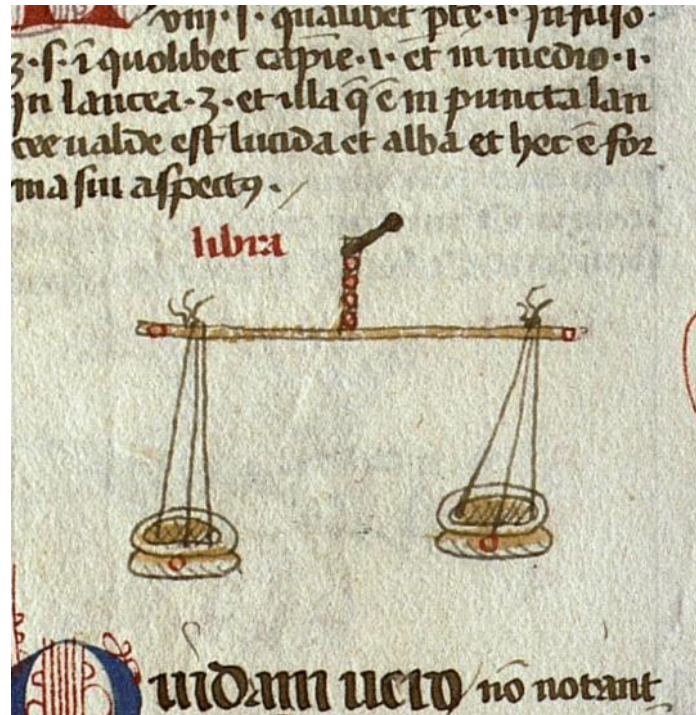 viii · s · qualibet pte · i · In fuso ·
z · s · ī quolibet capīe · i · et in medio · i ·
In lancea · z · et illa q̄ ē in puncta lan
cee ualde est lucida et alba et hec ē for
ma sui aspectꝯ ·
libra
Quidam uero nō notant